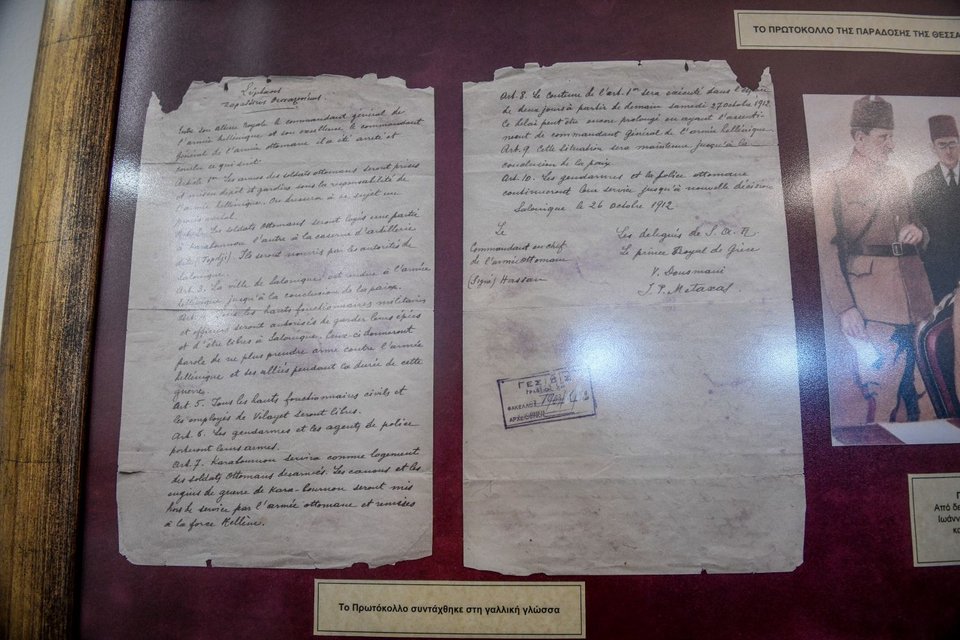 ΤΟ ΠΡΩΤΟΚΟΛΛΟ ΤΗΣ ΠΑΡΑΔΟΣΗΣ ΤΗΣ ΘΕΣΣΑ
παραδόσεως Θεσσαλονίκης.
Entre son altesse Royale le commandant général de
l'armée hellénique et son excellence, le commandant
général de l'armée ottomane il a été arrêté et
convenu ce qui suit
Article 1er Les armes des soldats ottomans seront prises
et mises en dépôt et gardées sous la responsabilité de
l'armée hellénique. On dressera à ce sujet un
procès verbal.
Art. 2. Les soldats Ottomans seront logés une partie
à Karabournou l'autre à la caserne d'artillerie
(Topdji). Ils seront nourris par les autorités de
Salonique.
Art. 3. La ville de Salonique est rendue à l'armée
hellénique jusqu'à la conclusion de la paix.
Art. 4. Tous les hauts fonctionnaires militaires
et officiers seront autorisés de garder leurs épées
et d'être libres à Salonique. Ceux-ci donneront
parole de ne plus prendre arme contre l'armée
hellénique et ses alliées pendant la durée de cette
guerre.
Art 5. Tous les hauts fonctionnaires civils et
les employés de Vilayet seront libres.
Art. 6. Les gendarmes et les agents de police
porteront leurs armes.
Art. 7. Karabournou servira comme logement
des soldats Ottomans désarmés. Les canons et les
engins de guerre de Kara-bournou seront mis
hors de service par l'armée ottomane et remises
à la force Hellène.
Art. 8. Le contenu de l'art. 1er sera exécuté dans l'espace
de deux jours à partir de demain samedi 27 octobre 1912
Ce délai peut être encore prolongé en ayant l'assenti-
ment de commandant Général de l'armée hellénique
Art. 9. Cette situation sera maintenue jusqu'à la
conclusion de la paix
Art. 10. Les gendarmes et la police ottomane
continueront leur service jusqu'à nouvelle décision
Salonique le 26 octobre 1912
Le
Commandant en chef
de l'armée ottomane
(Signé) Hassan
Les délégués de S. A. R
Le prince Royal de Grèce
V. Dousmani
J. P. Metaxas
ΓΕΣ
ΦΑΚΕΛΛΟΣ
Το Πρωτόκολλο συντάχθηκε στη γαλλική γλώσσα
Από δε
Ιωάνν
κα